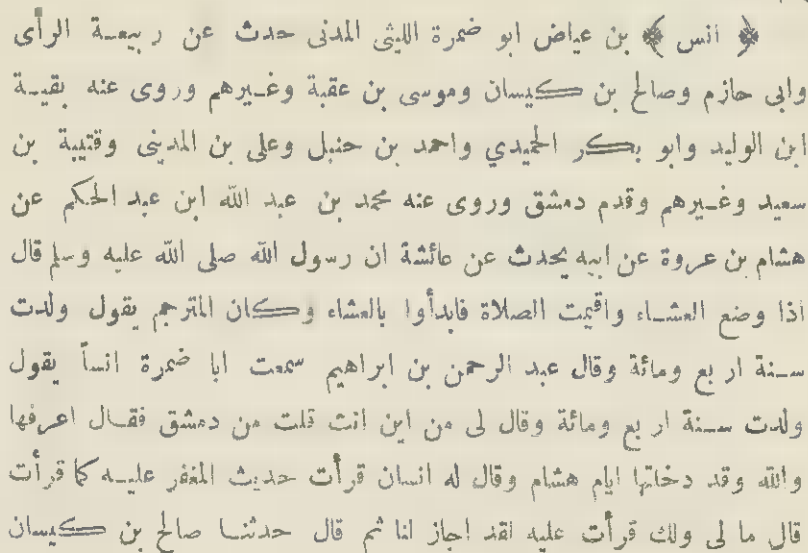 ﴿ انس ﴾ بن عياض ابو ضمرة الليثى المدنى حدث عن ربيعة الرأى
وابى حازم وصالح بن كيسان وموسى بن عقبة وغيرهم وروى عنه بقية
ابن الوليد وابو بكر الحميدي واحمد بن حنبل وعلى بن المدينى وقتيبة بن
سعيد وغيرهم وقدم دمشق وروى عنه محمد بن عبد الله ابن عبد الحكم عن
هشام بن عروة عن ابيه يحدث عن عائشة ان رسول الله صلى الله عليه وسلم قال
اذا وضع العشاء واقيمت الصلاة فابدأوا بالعشاء وكان المترجم يقول ولدت
سنة اربع ومائة وقال عبد الرحمن بن ابراهيم سمعت ابا ضمرة انساً يقول
ولدت سنة اربع ومائة وقال لى من اين انت قلت من دمشق فقال اعرفها
والله وقد دخلتها ايام هشام وقال له انسان قرأت حديث المغفر عليه كما قرأت
قال ما لى ولك قرأت عليه لقد اجاز لنا ثم قال حدثنا صالح بن كيسان